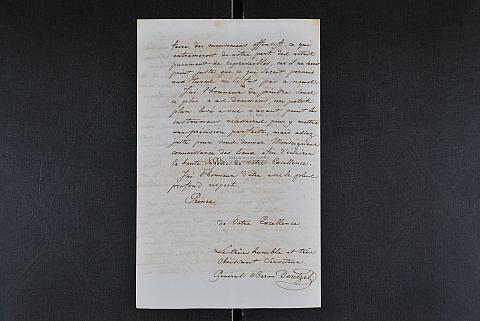 faire des mouvemens offensifs, ce qui
entraineroit de notre part des actes
purement de represailles, car il ne seroit
point juste que ce qui seroit permis
aux Turcs ne le fut pas a nous.
J'ai l'honneur de joindre sous
ce plis a un document, un petit
plan levé a vue n'ayant point les
instrumens necessaires pour y mettre
une précision parfaite, mais assez
juste pour vous donner Monseigneur
connaissance des lieux, afin d'éclairer
la haute de votre Excellence.
J'ai l'honneur d'être avec le plus
profond respect
Prince
de Votre Excellence
Le très humble et très
obéissant Serviteur
Général Baron Dentzel